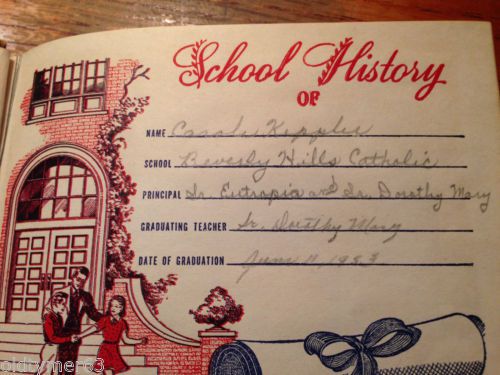 School History
OF
NAME Carole Keppler
SCHOOL Beverly Hills Catholic
PRINCIPAL Sr. Eutropia and Sr. Dorothy Mary
GRADUATING TEACHER Sr. Dorothy Mary
DATE OF GRADUATION June 11, 1953
oldtymer63